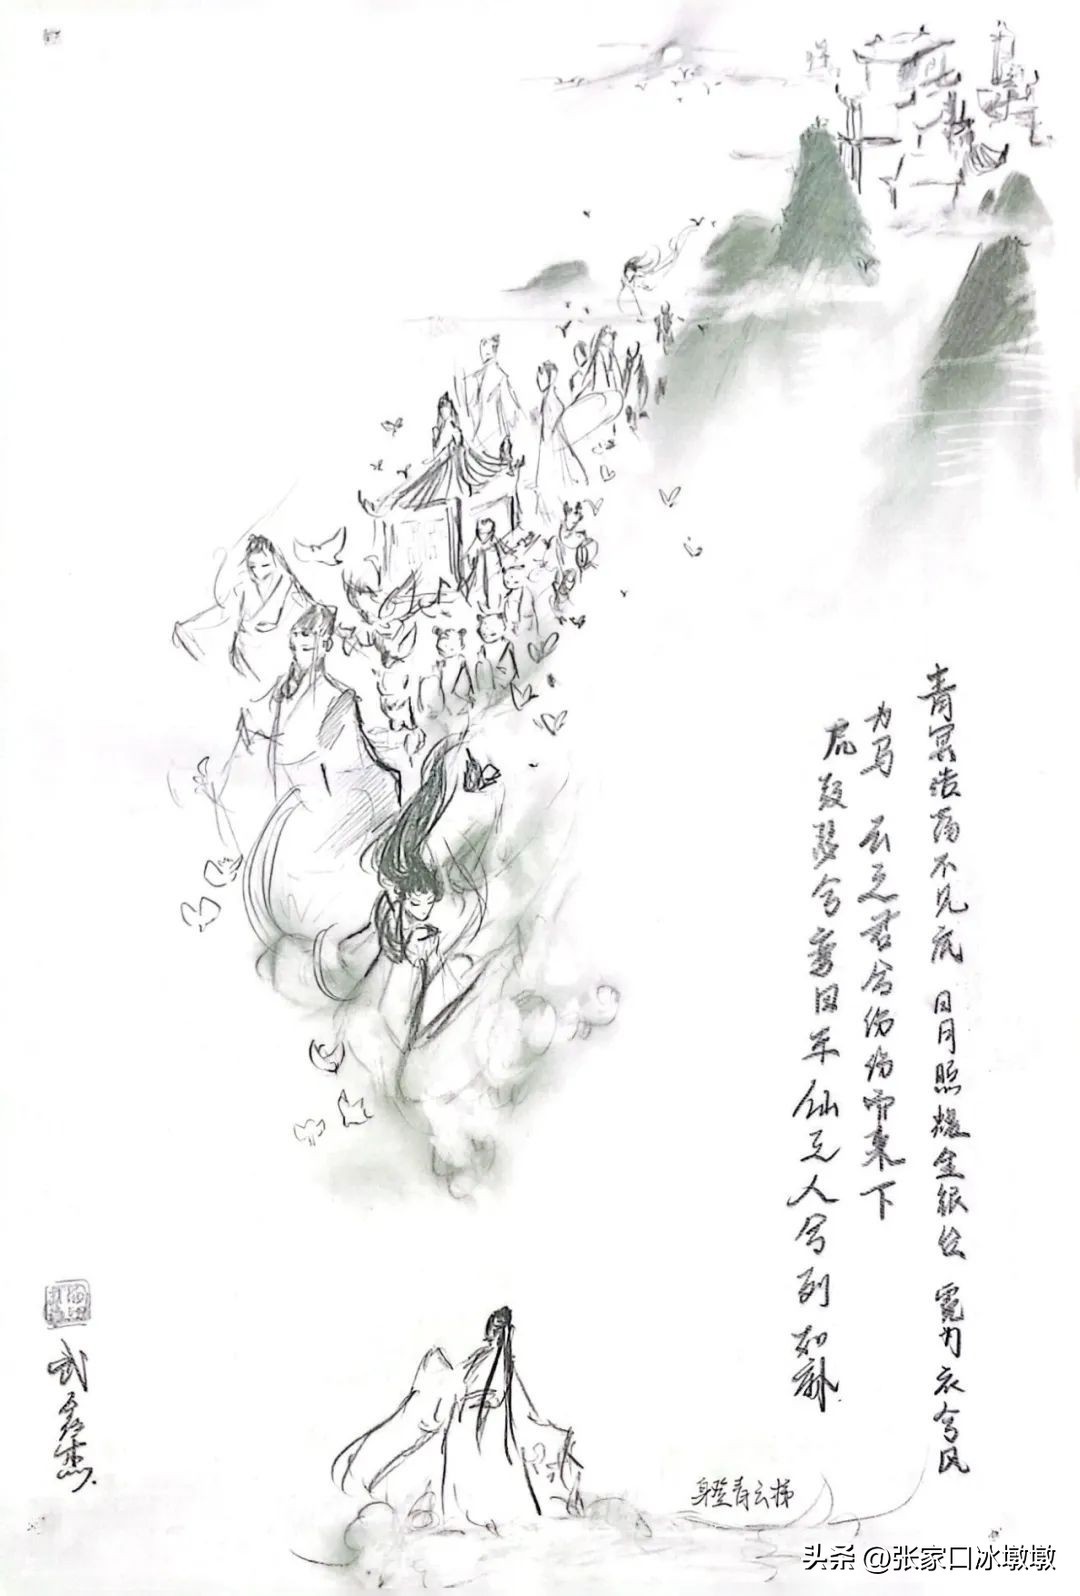 青冥浩荡不见底 日月照耀金银台 霓为衣兮风
为马 云之君兮纷纷而来下
虎鼓瑟兮鸾回车 仙之人兮列如麻
身登青云梯
武 杰
头条 @张家口冰墩墩